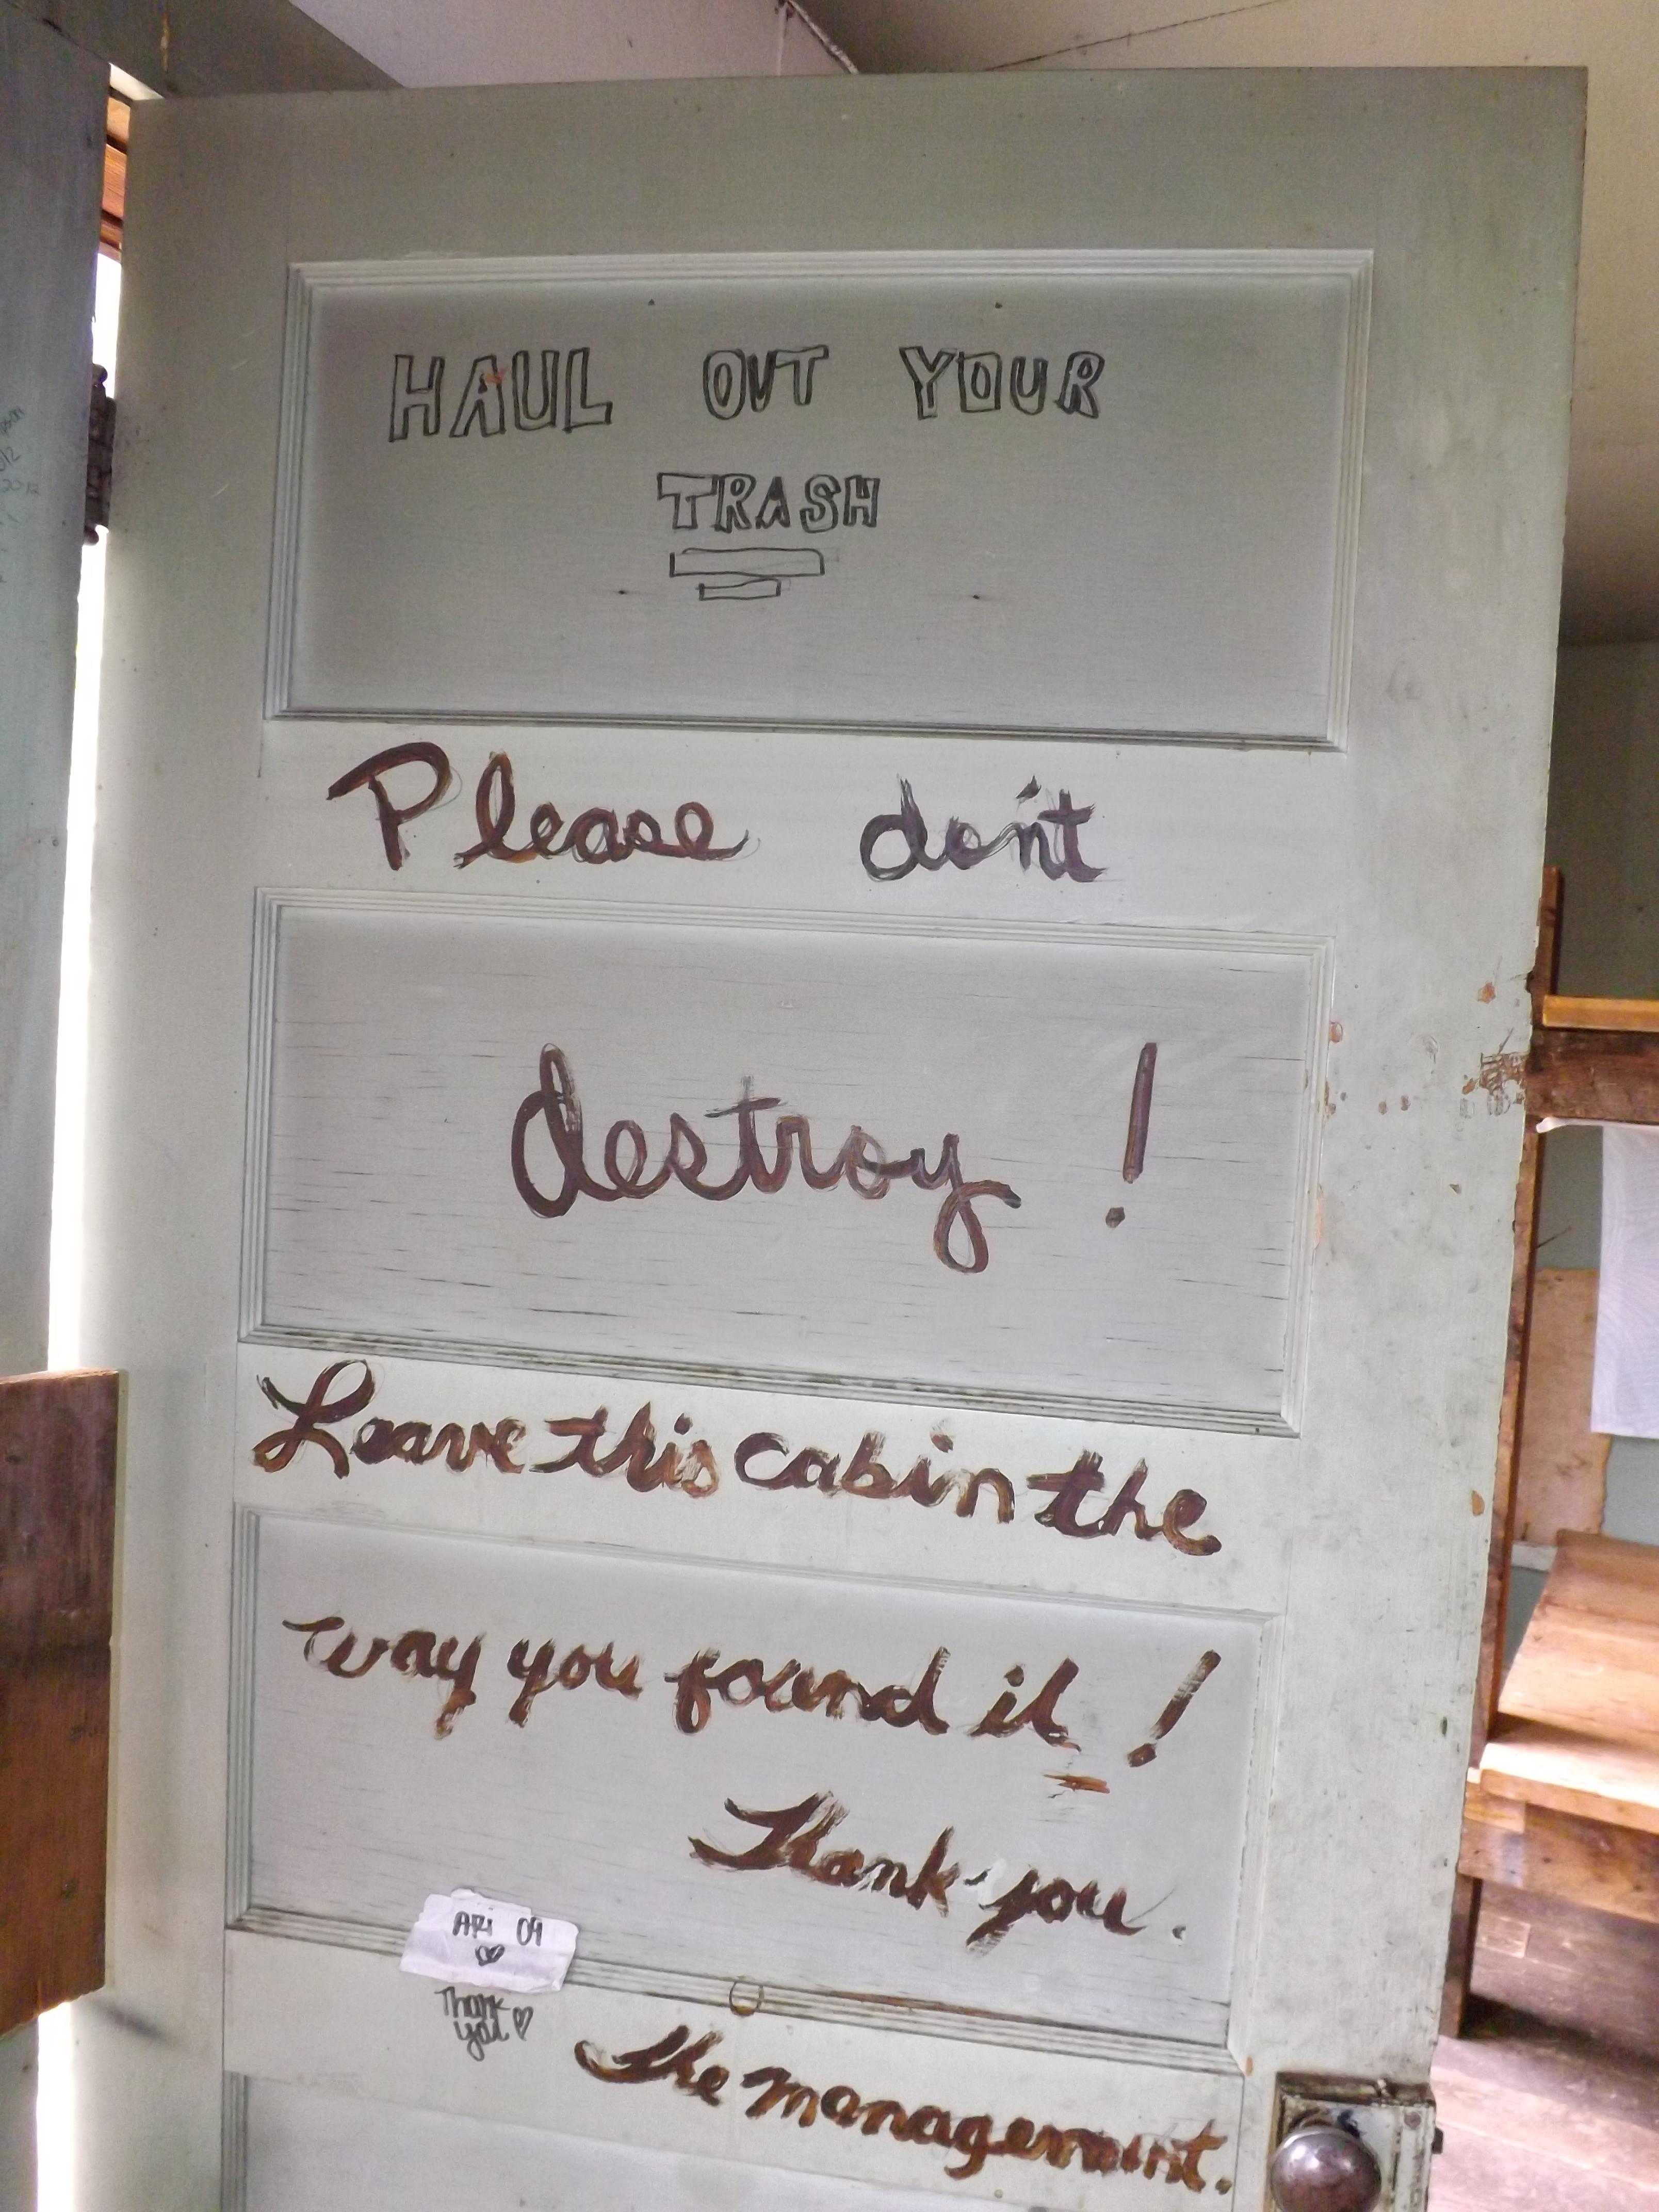 HAUL OUT YOUR
TRASH
Please don't
destroy !
Leave this cabin the
way you found it !
Thank-you.
ARi 04
Thank
you
the management.